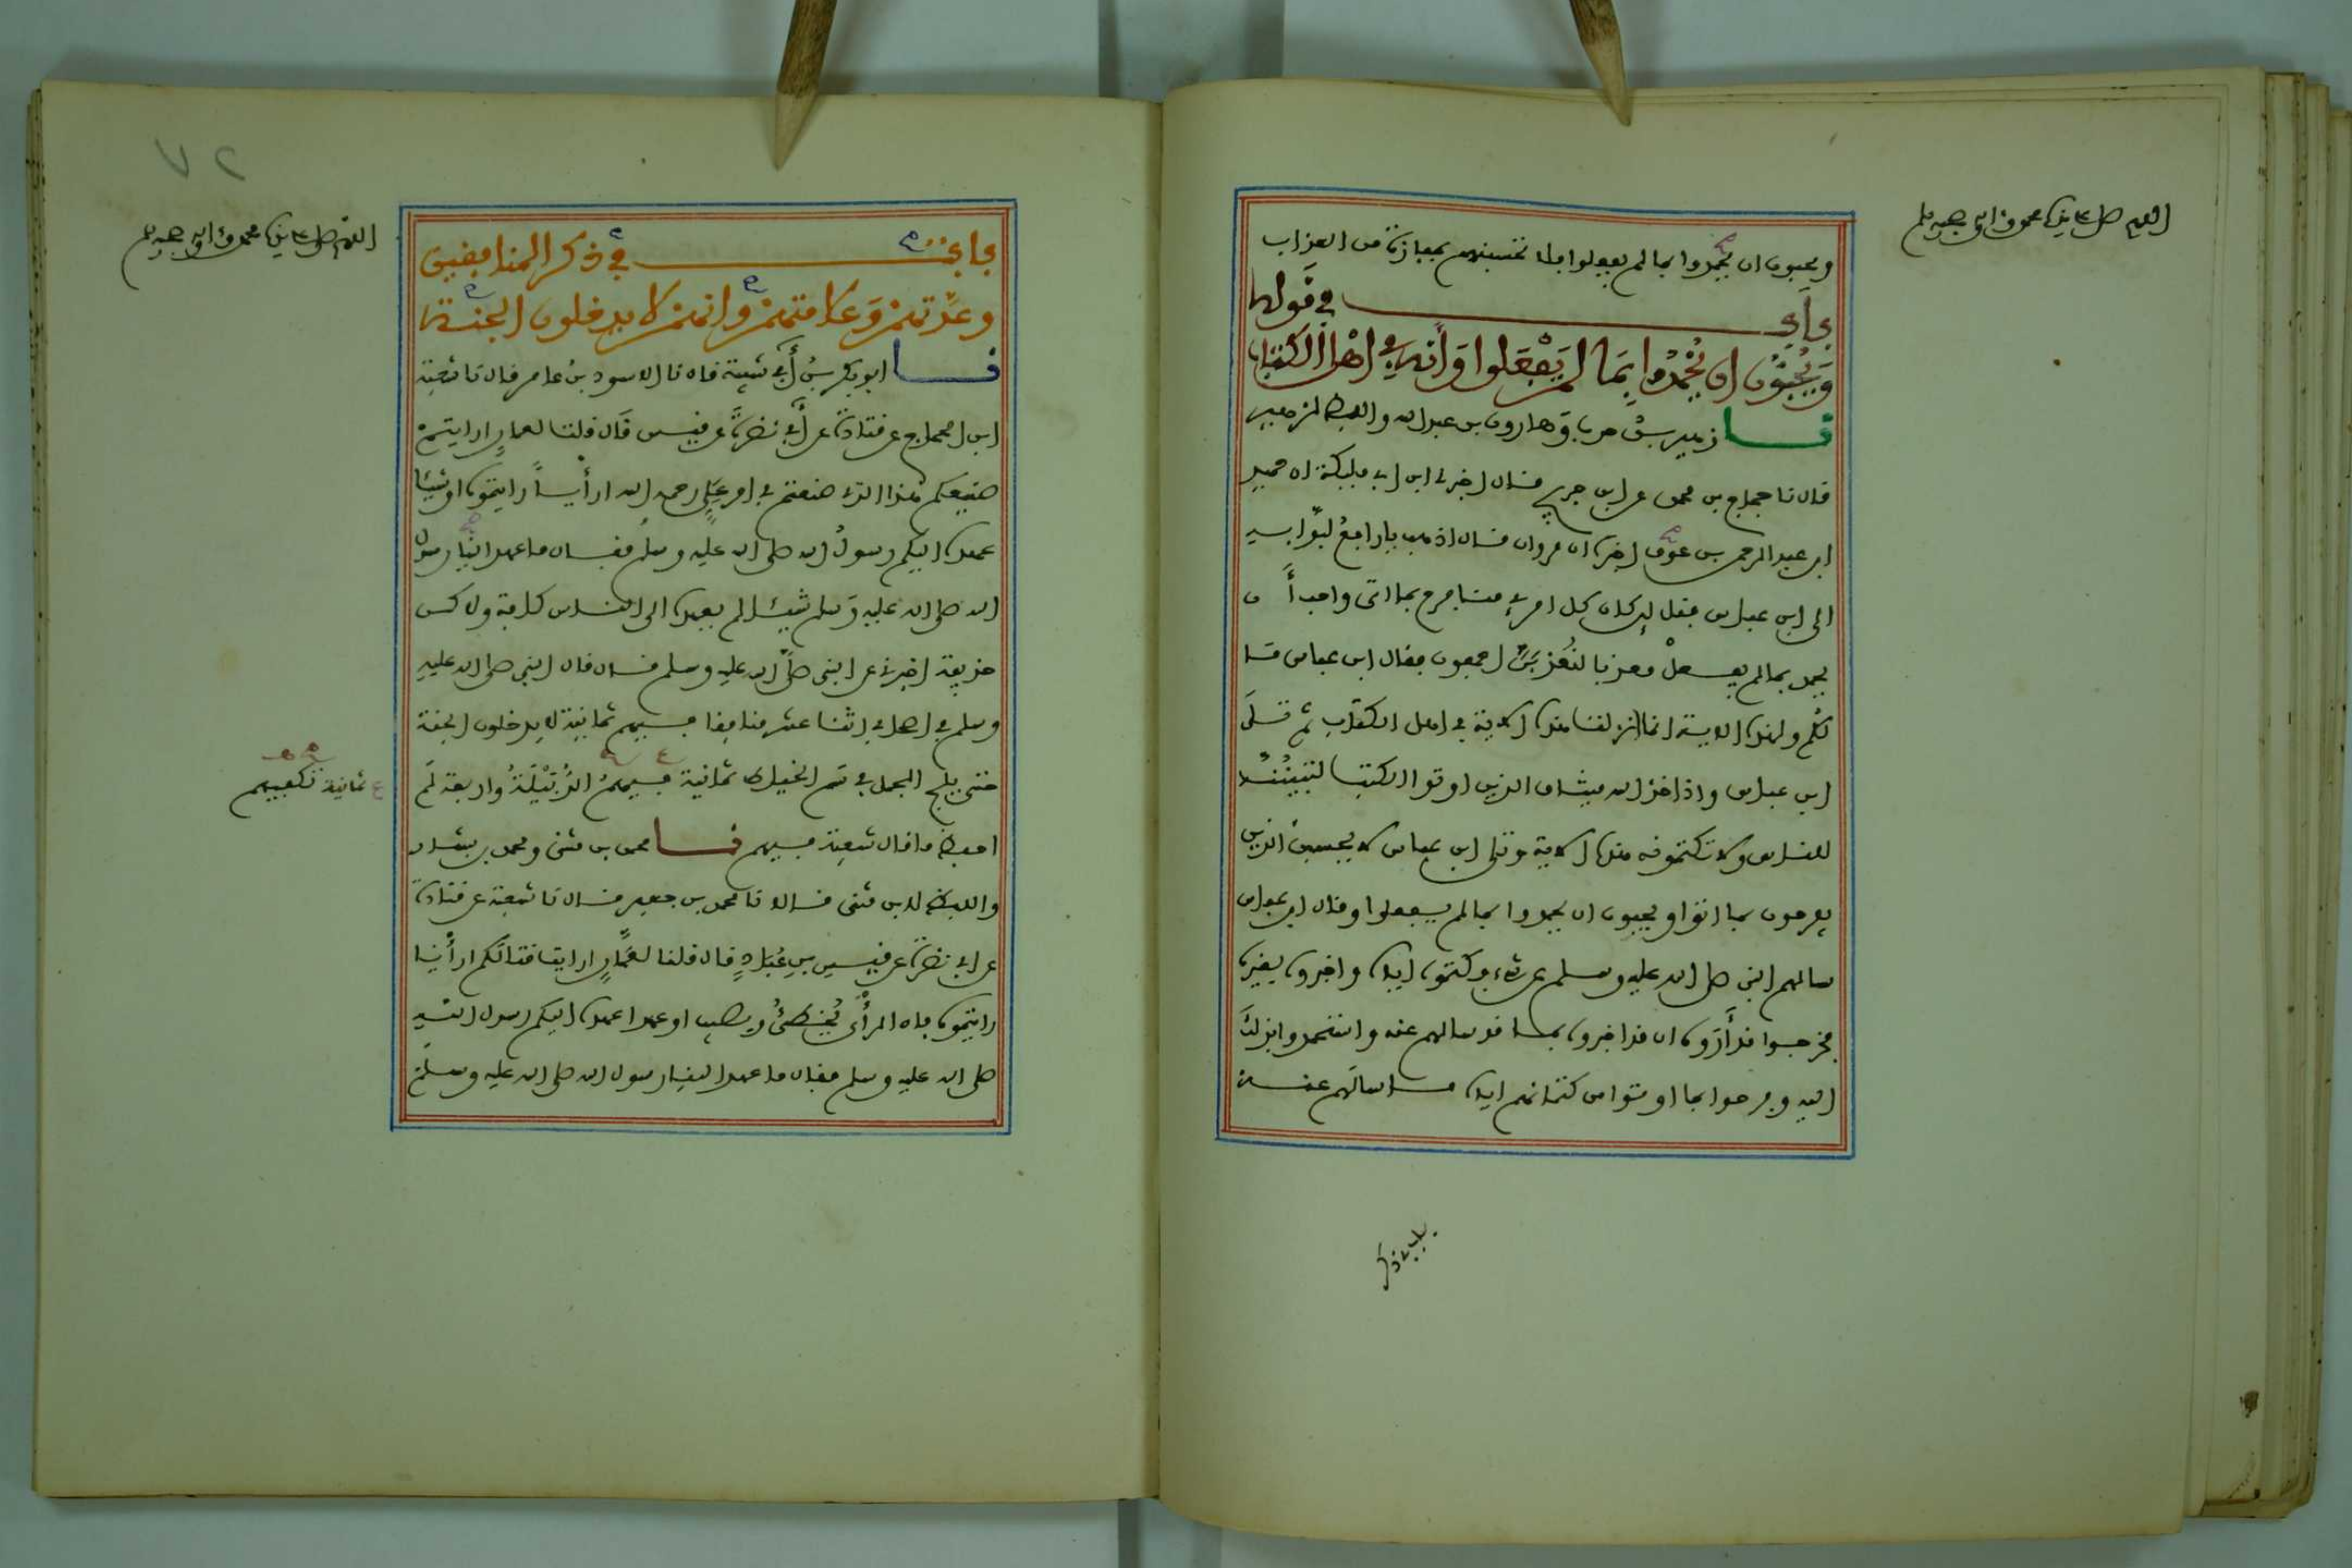 اللهم صل على سيدنا محمد وآله وصحبه وسلم
ويحبون ان يحمدوا بما لم يفعلوا فلا تحسبنهم بمفازة من العذاب
باب في قوله
وَيُحِبُّونَ ان يُحْمَدُوا بِمَا لَمْ يَفْعَلوا وَأنه في اهل الكتاب
نا زهير بن حرب وهارون بن عبد الله واللفظ لزهير
قال نا حجاج بن محمد عن ابن جريج قال اخبرني ابن ابي مليكة ان حميد
ابن عبد الرحمن بن عوف اخبره ان مروان قال اذهب يا رافع لبوابه
الى ابن عباس فقل لئن كان كل امرئ منا فرح بما اتى واحب أن
يحمد بما لم يفعل معذبا لنُعَذبَنَّ اجمعون فقال ابن عباس ما
لكُم ولهذه الاية انما انزلت هذه الاية في اهل الكتاب ثم تلى
ابن عباس واذ اخذ الله ميثاق الذين اوتوا الكتب لتبيننه
للناس ولا تكتمونه هذه الاية وتلى ابن عباس لا يحسبن الذين
يفرحون بما اتوا ويحبون ان يحمدوا بما لم يفعلوا وقال ابن عباس
سالهم النبي صلى الله عليه وسلم عن شيء فكتموه اياه واخبروه بغيره
فخرجوا قد أروه ان قد اخبروه بما قد سالهم عنه واستحمدوا بذلك
اليه وفرحوا بما اوتوا من كتمانهم اياه ما سالهم عنه
باب في ذكر
٧٢
اللهم صل على سيدنا محمد وآله وصحبه وسلم
باب في ذكر المنافقين
وعدتهم وعلامتهم وانهم لا يدخلون الجنة
نا ابو بكر بن أبي شيبة قال نا الاسود بن عامر قال نا شعبة
ابن الحجاج عن قتادة عن أبي نضرة عن قيس قال قلنا لعمار ارايتم
صنيعكم هذا الذي صنعتم في امر علي رحمه الله ارأيا رايتموه او شيئا
عهده اليكم رسول الله صلى الله عليه وسلم فقال ما عهد الينا رسول
الله صلى الله عليه وسلم شيئا لم يعهده الى الناس كافة ولاكن
حذيفة اخبرني عن النبي صلى الله عليه وسلم قال قال النبي صلى الله عليه
وسلم في اصحابي اثنا عشر منافقا فيهم ثمانية لا يدخلون الجنة
حتى يلج الجمل في سم الخياط ثمانية فيهم الدُّبَيْلَةُ واربعة لم
احفظ ما قال شعبة فيهم نا محمد بن مثنى ومحمد بن بشار
واللفظ لابن مثنى قالا نا محمد بن جعفر قال نا شعبة عن قتادة
عن ابي نضرة عن قيس بن عُبَادٍ قال قلنا لعمار ارايت قتالكم ارأيا
رايتموه فان الرأي يُخطئُ ويصيب او عهدا عهده اليكم رسول الله
صلى الله عليه وسلم فقال ما عهد الينا رسول الله صلى الله عليه وسلم
ثمانية تكفيهم